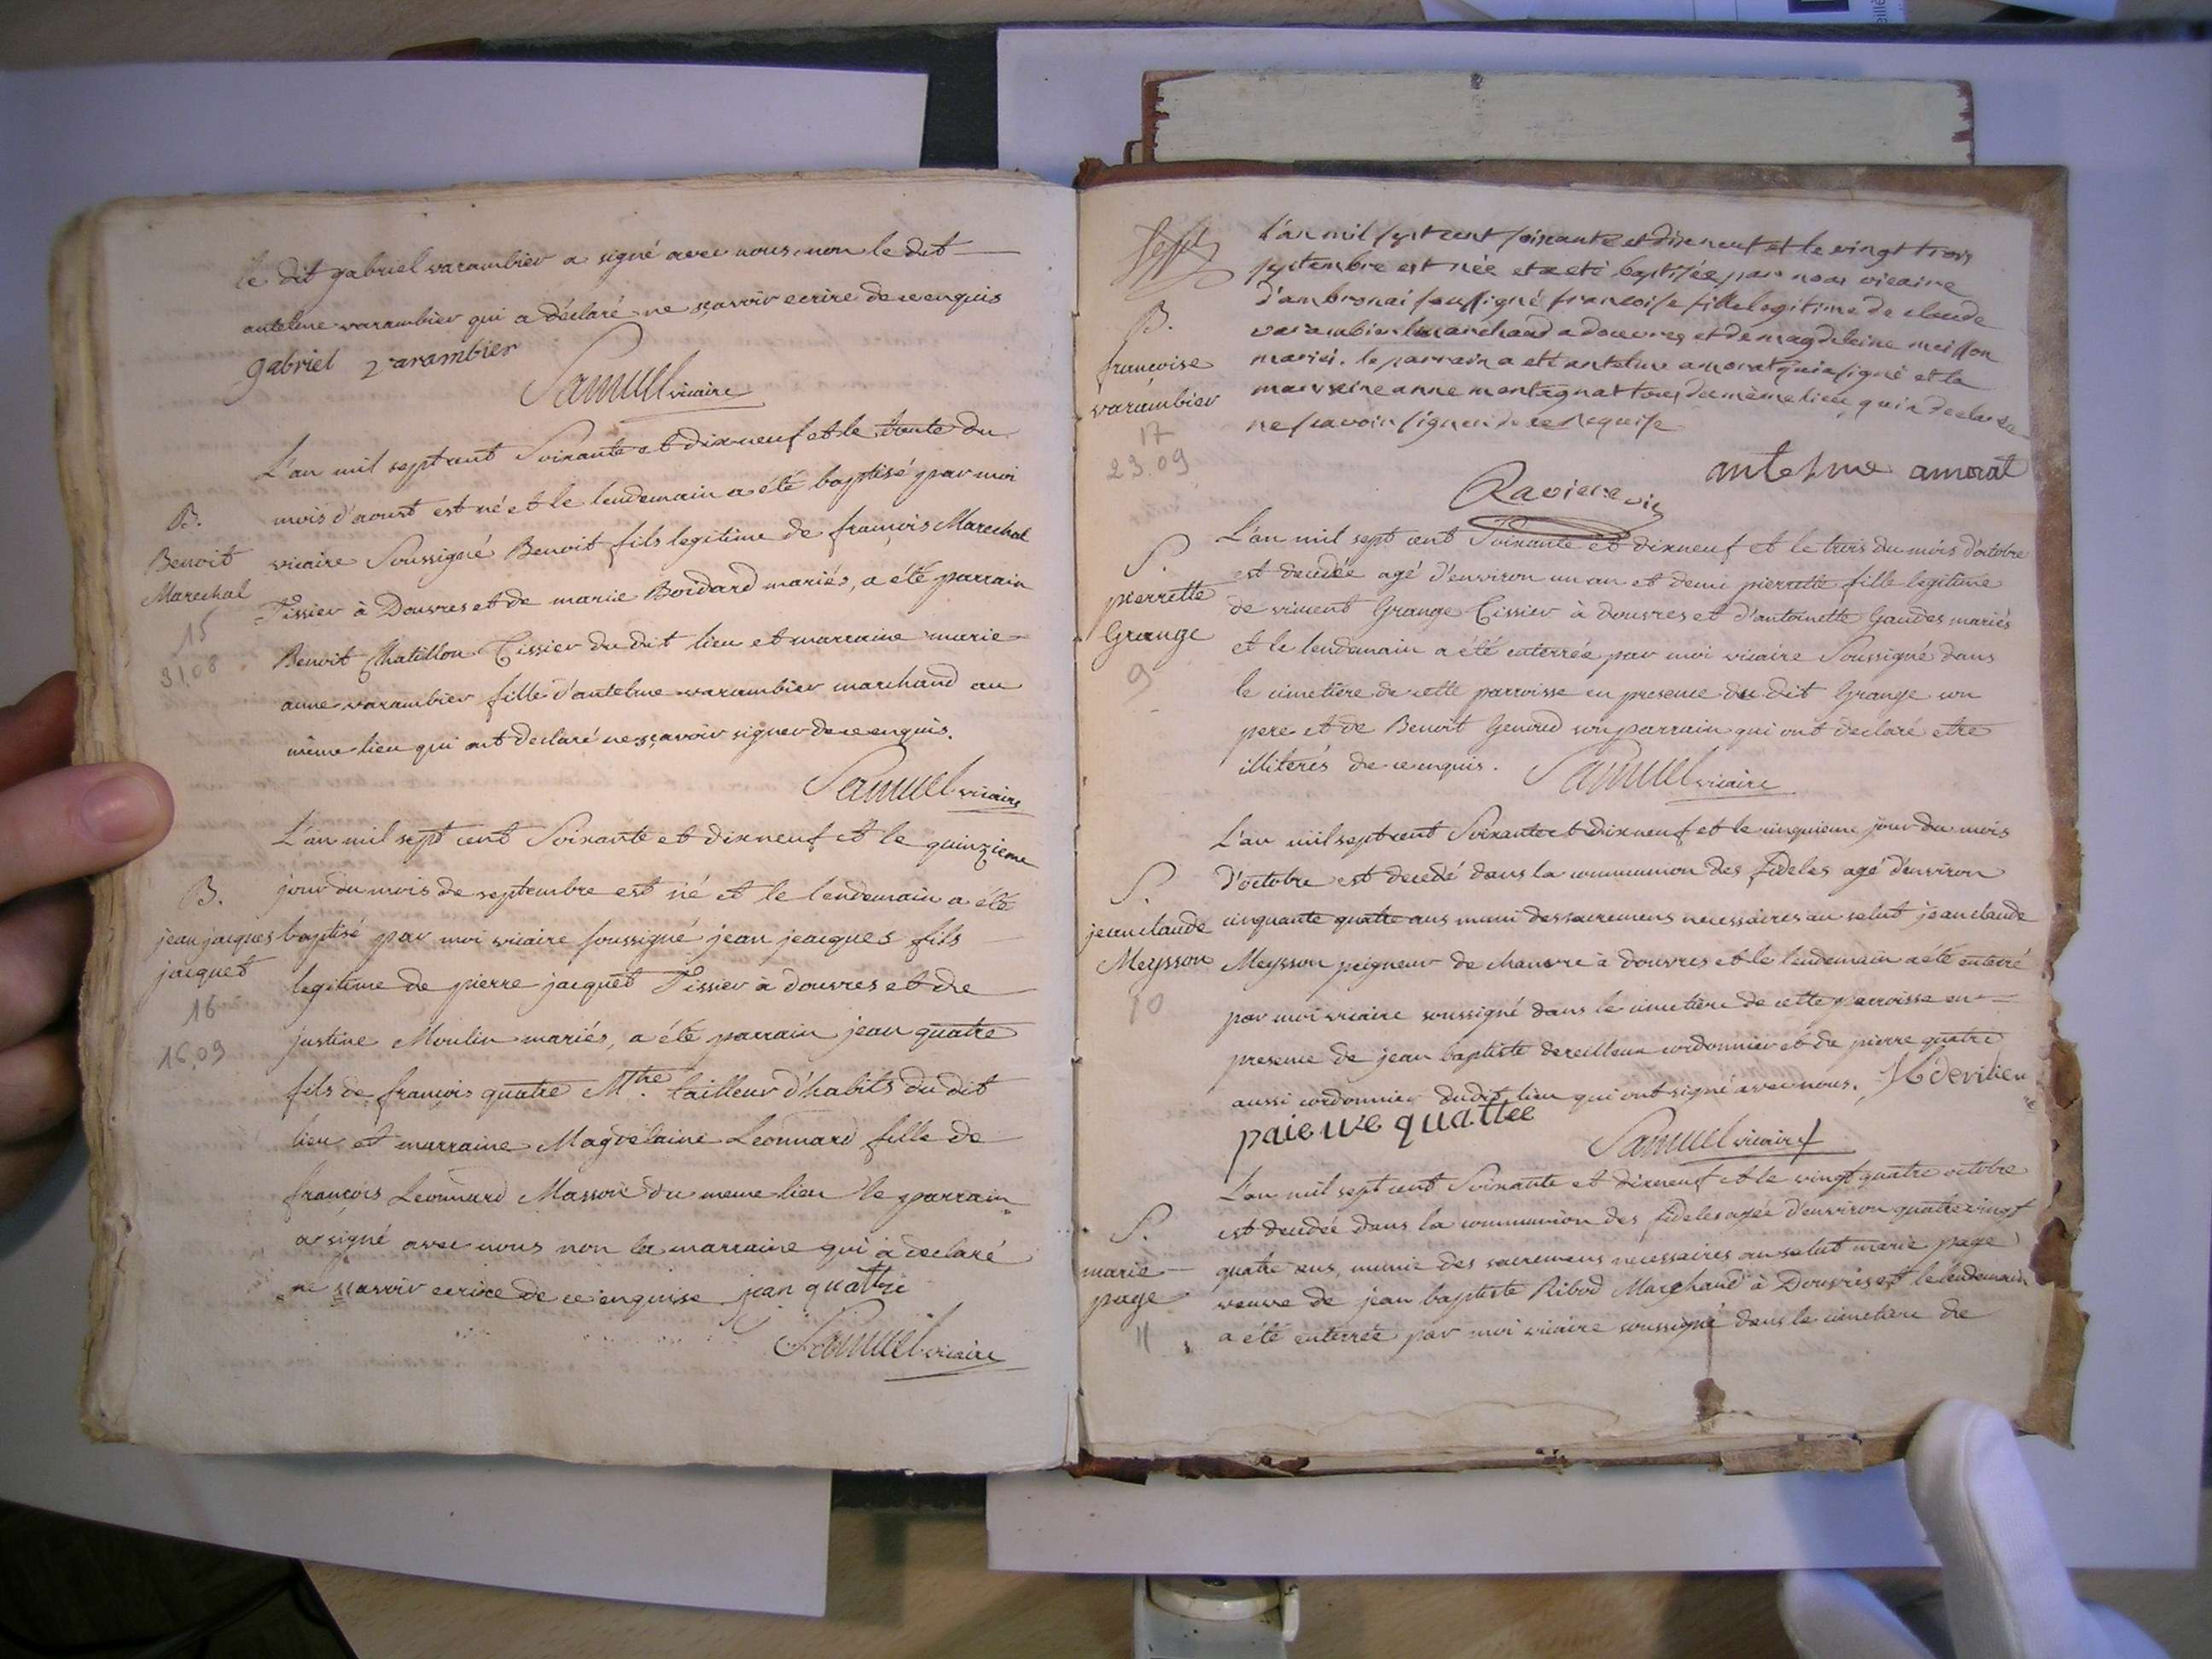 le dit gabriel varambier a signé avec nous, non le dit
antelme varambier qui a déclaré ne sçavoir ecrire de ce enquis
gabriel varambier
Samuel vicaire
L'an mil sept cent Soixante et dixneuf et le trente du
mois d'aoust est né et le lendemain a été baptisé par moi
B.
Benoit
Marechal
15
31.08
vicaire Soussigné Benoit fils legitime de françois Marechal
Tissier à Douvres et de marie Boidard mariés, a été parrain
Benoit Chatillon Tissier du dit lieu et marraine marie
anne varambier fille d'antelme varambier marchand au
même lieu qui ont declaré ne sçavoir signer de ce enquis.
Samuel vicaire
L'an mil sept cent Soixante et dixneuf et le quinzieme
B.
jean jacques
jacquet
16
16.09
jour du mois de septembre est né et le lendemain a été
baptisé par moi vicaire soussigné jean jacques fils
legitime de pierre jacquet Tissier à douvres et de
justine Moulin mariés, a été parrain jean quatre
fils de françois quatre Mtre. tailleur d'habits du dit
lieu et marraine Magdelaine Leonnard fille de
françois Leonnard Masson du meme lieu le parrain
a signé avec nous non la marraine qui a declaré
ne sçavoir ecrire de ce enquise jean quattre
Samuel vicaire
Sept
B.
françoise
varambier
17
23.09
l'an mil sept cent soixante et dixneuf et le vingt trois
septembre est née et a eté baptisée par nous vicaire
d'ambronai soussigné francoise fille legitime de claude
varambier marchand a douvres et de magdeleine meisson
mariés. le parrain a eté antelme amorat qui a signé et la
marreine anne montagnat tous du même lieu qui a declaré
ne scavoir signer de ce requise
antelme amorat
Raviere vic
S.
pierrette
Grange
9
L'an mil sept cent Soixante et dixneuf et le trois du mois d'octobre
est decedée agé d'environ un an et demi pierrette fille legitime
de vincent Grange Tissier à douvres et d'antoinette Gaudes mariés
et le lendemain a été enterrée par moi vicaire Soussigné dans
le cimetière de cette parroisse en presence du dit Grange son
pere et de Benoit Genoud son parrain qui ont declaré etre
illiterés de ce enquis. Samuel vicaire
S.
jean claude
Meysson
10
L'an mil sept cent Soixante et dixneuf et le cinquieme jour du mois
d'octobre est decedé dans la communion des fideles agé d'environ
cinquante quatre ans muni des sacremens necessaires au salut jean claude
Meysson peigneur de chanvre à douvres et le lendemain a été enterré
par moi vicaire soussigné dans le cimetière de cette parroisse en
presence de jean baptiste cordonnier et de pierre quatre
aussi cordonnier du dit lieu qui ont signé avec nous.
paieuve quattee
Samuel vicaire
S.
marie
page
11
L'an mil sept cent Soixante et dixneuf et le vingt quatre octobre
est decedée dans la communion des fideles agée d'environ quatre vingt
quatre ans, munie des sacremens necessaires au salut marie page
veuve de jean baptiste Ribod Marchand à Douvres et le lendemain
a été enterrée par moi vicaire soussigné dans le cimetiere de